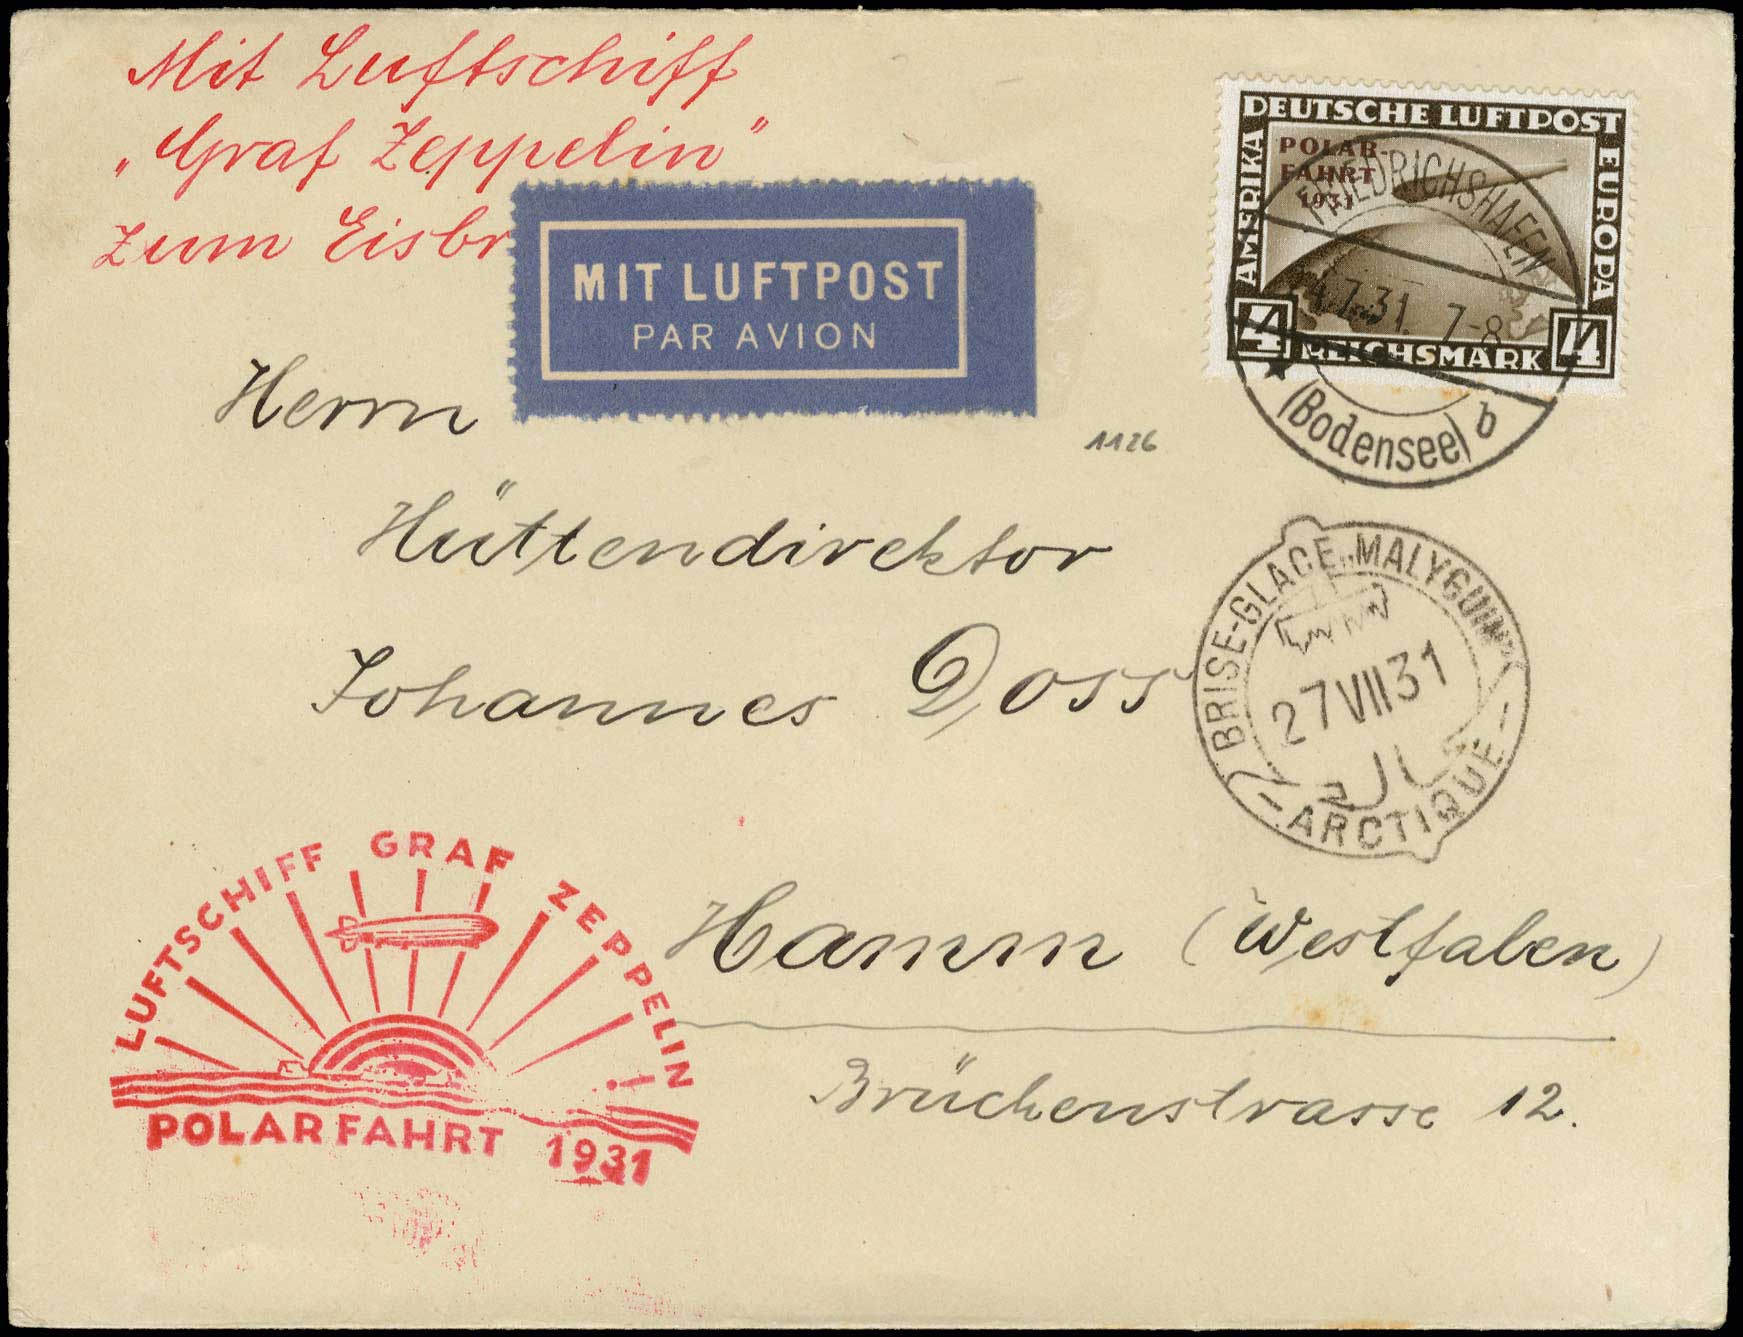 Mit Luftschiff
„Graf Zeppelin"
zum Eisbr
MIT LUFTPOST
PAR AVION
DEUTSCHE LUFTPOST
AMERIKA
EUROPA
POLAR-
FAHRT
1931
4 REICHSMARK 4
FRIEDRICHSHAFEN
7.31. 7-8
(Bodensee) b
1126
Herrn
Hüttendirektor
Johannes Doss
BRISE-GLACE „MALYGUIN"
27 VII 31
- ARCTIQUE -
Hamm (Westfalen)
Brückenstrasse 12.
LUFTSCHIFF GRAF ZEPPELIN
POLARFAHRT 1931